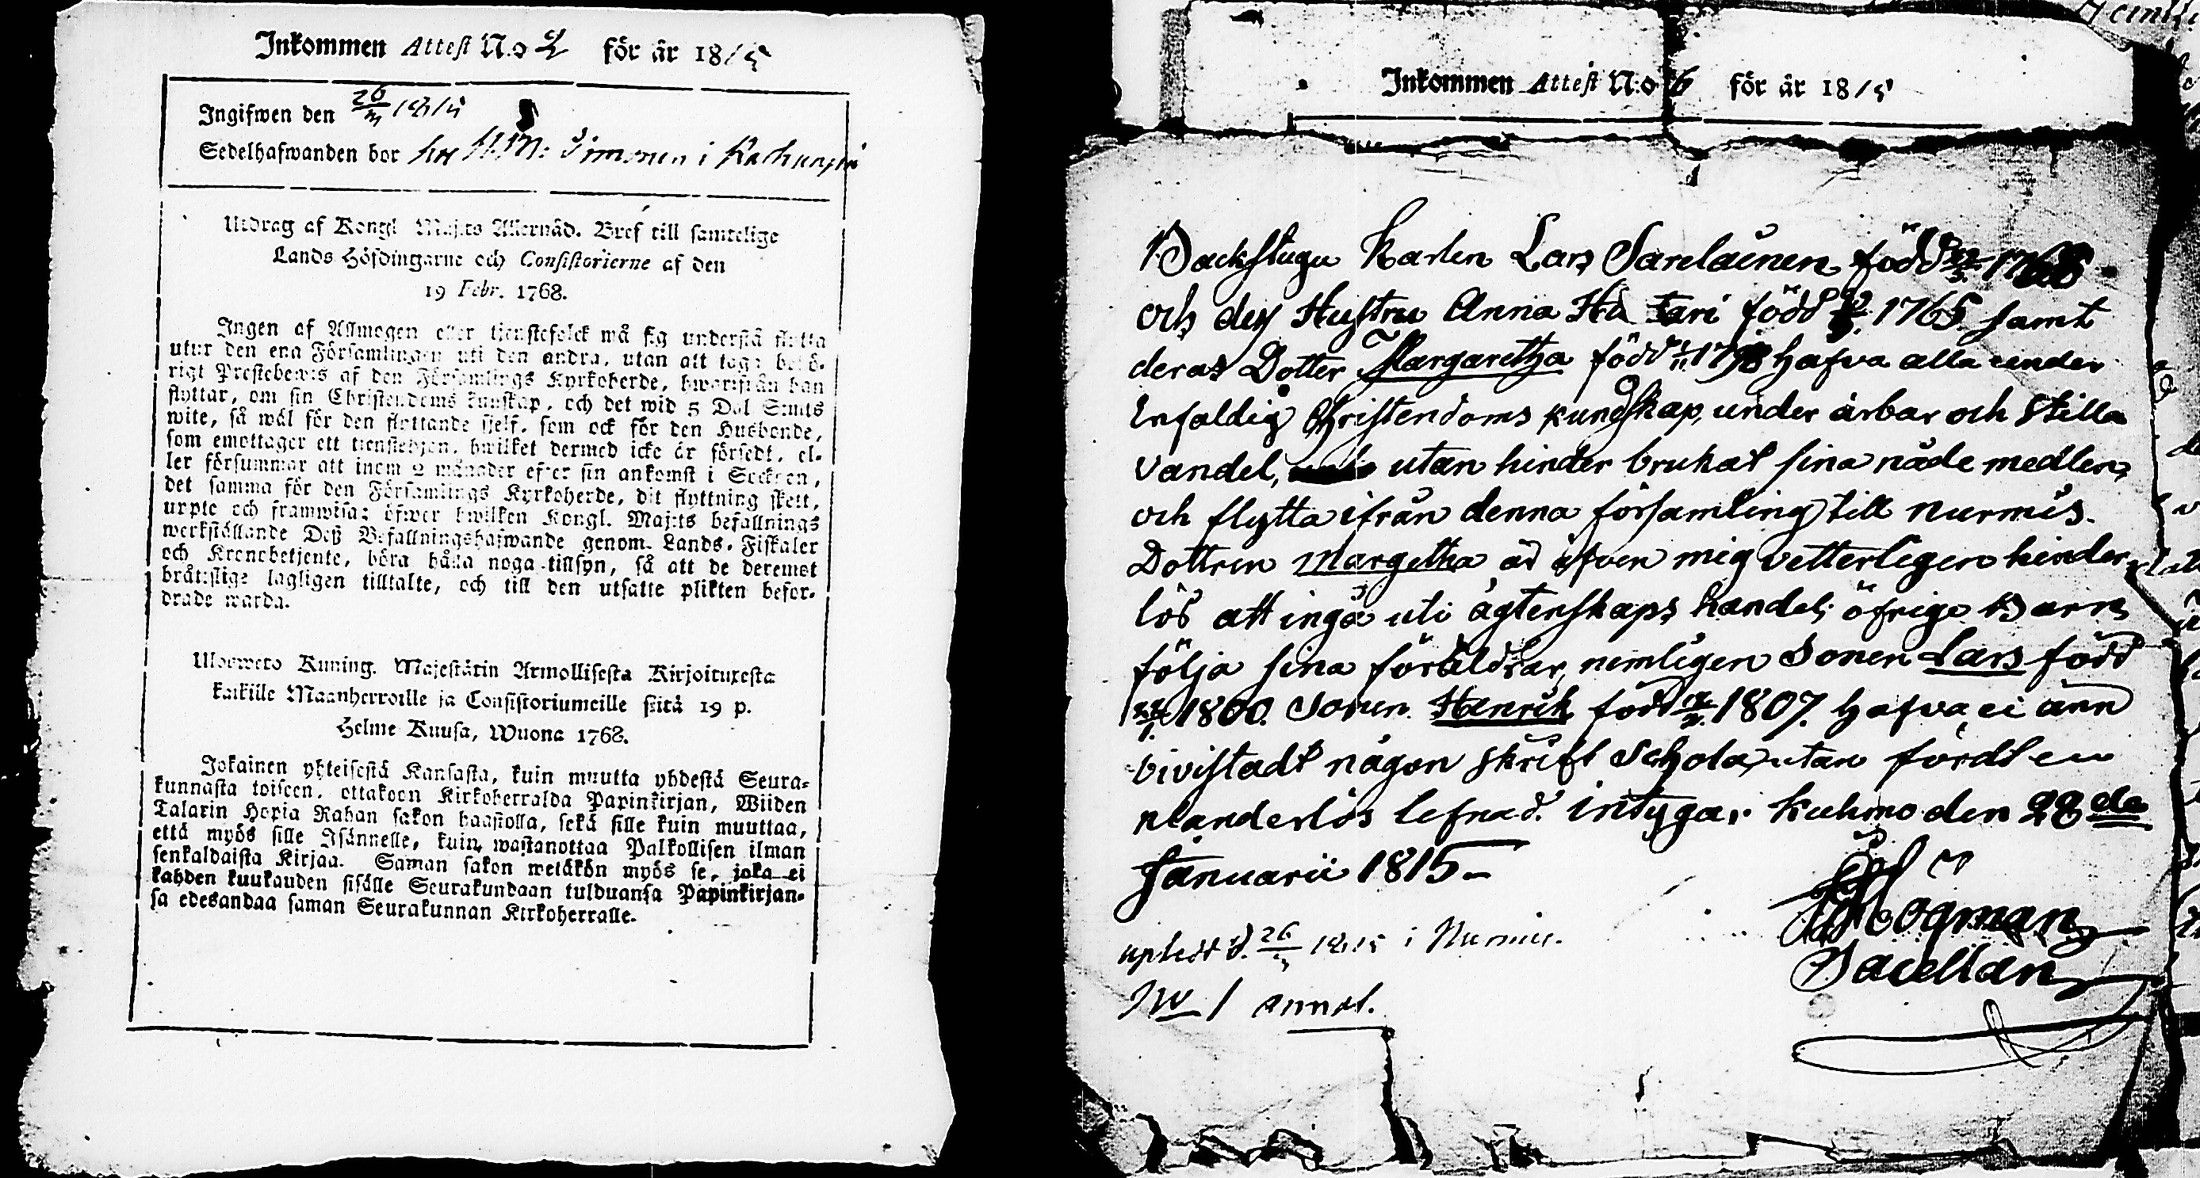 Inkommen Attest N:o 2 för år 1815
Ingifwen den 26/3 1815
Sedelhafwanden bor hos Simonen i
Utdrag af Kongl. Maj:ts Allernåd. Bref till samtelige
Lands Höfdingarne och Consistorierne af den
19 Febr. 1768.
Ingen af Allmogen eller tjenstefolck må sig understå flytta
utur den ena Församlingen uti den andra, utan att taga behö-
rigt Prestebewis af den Församlings Kyrkoherde, hwarifrån han
flyttar, om sin Christendoms kunskap, och det wid 5 Dal Smts
wite, så wäl för den flyttande sjelf, som ock för den Husbonde,
som emottager ett tienstehjon, hwilket dermed icke är försedt, el-
ler försummar att inom 2 månader efter sin ankomst i Socknen,
det samma för den Församlings Kyrkoherde, dit flyttning skett,
urpte och framwisa; öfwer hwilken Kongl. Maj:ts befallnings
werkställande Deß Befallningshafwande genom Lands-Fiskaler
och Kronobetjente, böra hålla noga tillsyn, så att de deremot
bråtislige lagligen tilltalte, och till den utsatte plikten befor-
drade warda.
Ulosweto Kuning. Majestätin Armollisesta Kirjoituxesta
kaikille Maanherroille ja Consistoriumeille siitä 19 p.
Helme Kuusa, Wuona 1768.
Jokainen yhteisestä Kansasta, kuin muutta yhdestä Seura-
kunnasta toiseen, ottakoon Kirkoherralda Papinkirjan, Wiiden
Talarin Hopia Rahan sakon haastolla, sekä sille kuin muuttaa,
että myös sille Isännelle, kuin wastanottaa Palkollisen ilman
senkaldaista Kirjaa. Saman sakon wetäkön myös se, joka ei
kahden kuukauden sisälle Seurakundaan tulduansa Papinkirjan-
sa edesandaa saman Seurakunnan Kirkoherralle.
Inkommen Attest N:o 6 för år 1815
Backstugu Karlen Lars Sarelainen född 1768
och des Hustru Anna född 1765 samt
deras Dotter Margaretha född 1798 hafva alla under
Enfaldig Christendoms kundskap, under ärbar och stilla
vandel, utan hinder brukat sina nåde medlen,
och flytta ifrån denna församling till Nurmis.
Dottren Margetha är äfven mig vetterligen hinder
lös att ingå uti ägtenskaps handel; öfrige Barn
följa sina föräldrar, nemligen Sonen Lars född
1800. Sonen Henrik född 1807. hafva ei änn
bivistadt någon skrift Schola, utan fördt en
klanderlös lefnad. intygar Kuhmo den 28de
Januarii 1815
Högman
Sacellan
uplest d. 26/3 1815 i Nurmis.
No 1 annot.